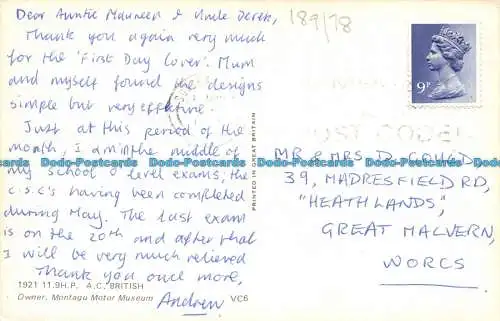 Dear Auntie Maureen & Uncle Derek,
Thank you again very much
for the 'First Day Cover'. Mum
and myself found the designs
simple but very effective.
Just at this period of the
month, I am in the middle of
my school O level exams, the
C.S.C's having been completed
during May. The last exam
is on the 20th and after that
I will be very much relieved
Thank you once more,
Andrew
1921 11.9H.P. A.C. BRITISH
Owner, Montagu Motor Museum VC6
PRINTED IN GREAT BRITAIN
189/78
9P
POSTCODE
MR & MRS D.
39, MADRESFIELD RD,
"HEATHLANDS",
GREAT MALVERN,
WORCS
Dodo-Postcards Dodo-Postcards Dodo-Postcards Dodo-Postcards Dodo-Postcards